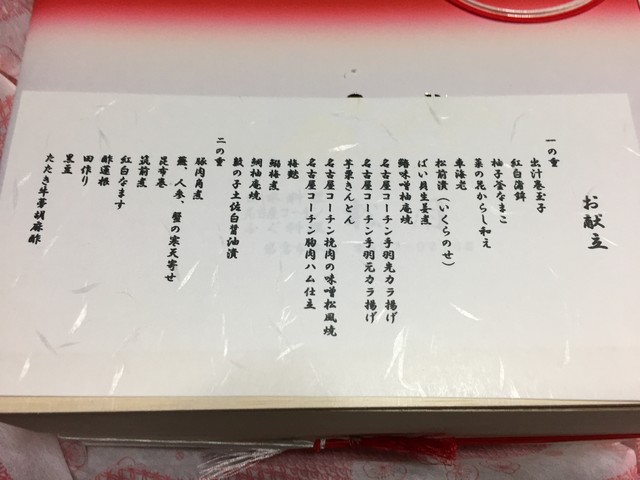 お献立
一の重
出汁巻玉子
紅白蒲鉾
柚子釜なまこ
菜の花からし和え
車海老
松前漬（いくらのせ）
ばい貝生姜煮
鰆味噌柚庵焼
名古屋コーチン手羽先カラ揚げ
名古屋コーチン手羽元カラ揚げ
芋栗きんとん
名古屋コーチン挽肉の味噌松風焼
名古屋コーチン胸肉ハム仕立
梅麩
鰯梅煮
鯛柚庵焼
数の子土佐白醤油漬
二の重
豚肉角煮
蕪、人参、蟹の寒天寄せ
昆布巻
筑前煮
紅白なます
酢蓮根
田作り
黒豆
たたき牛蒡胡麻酢